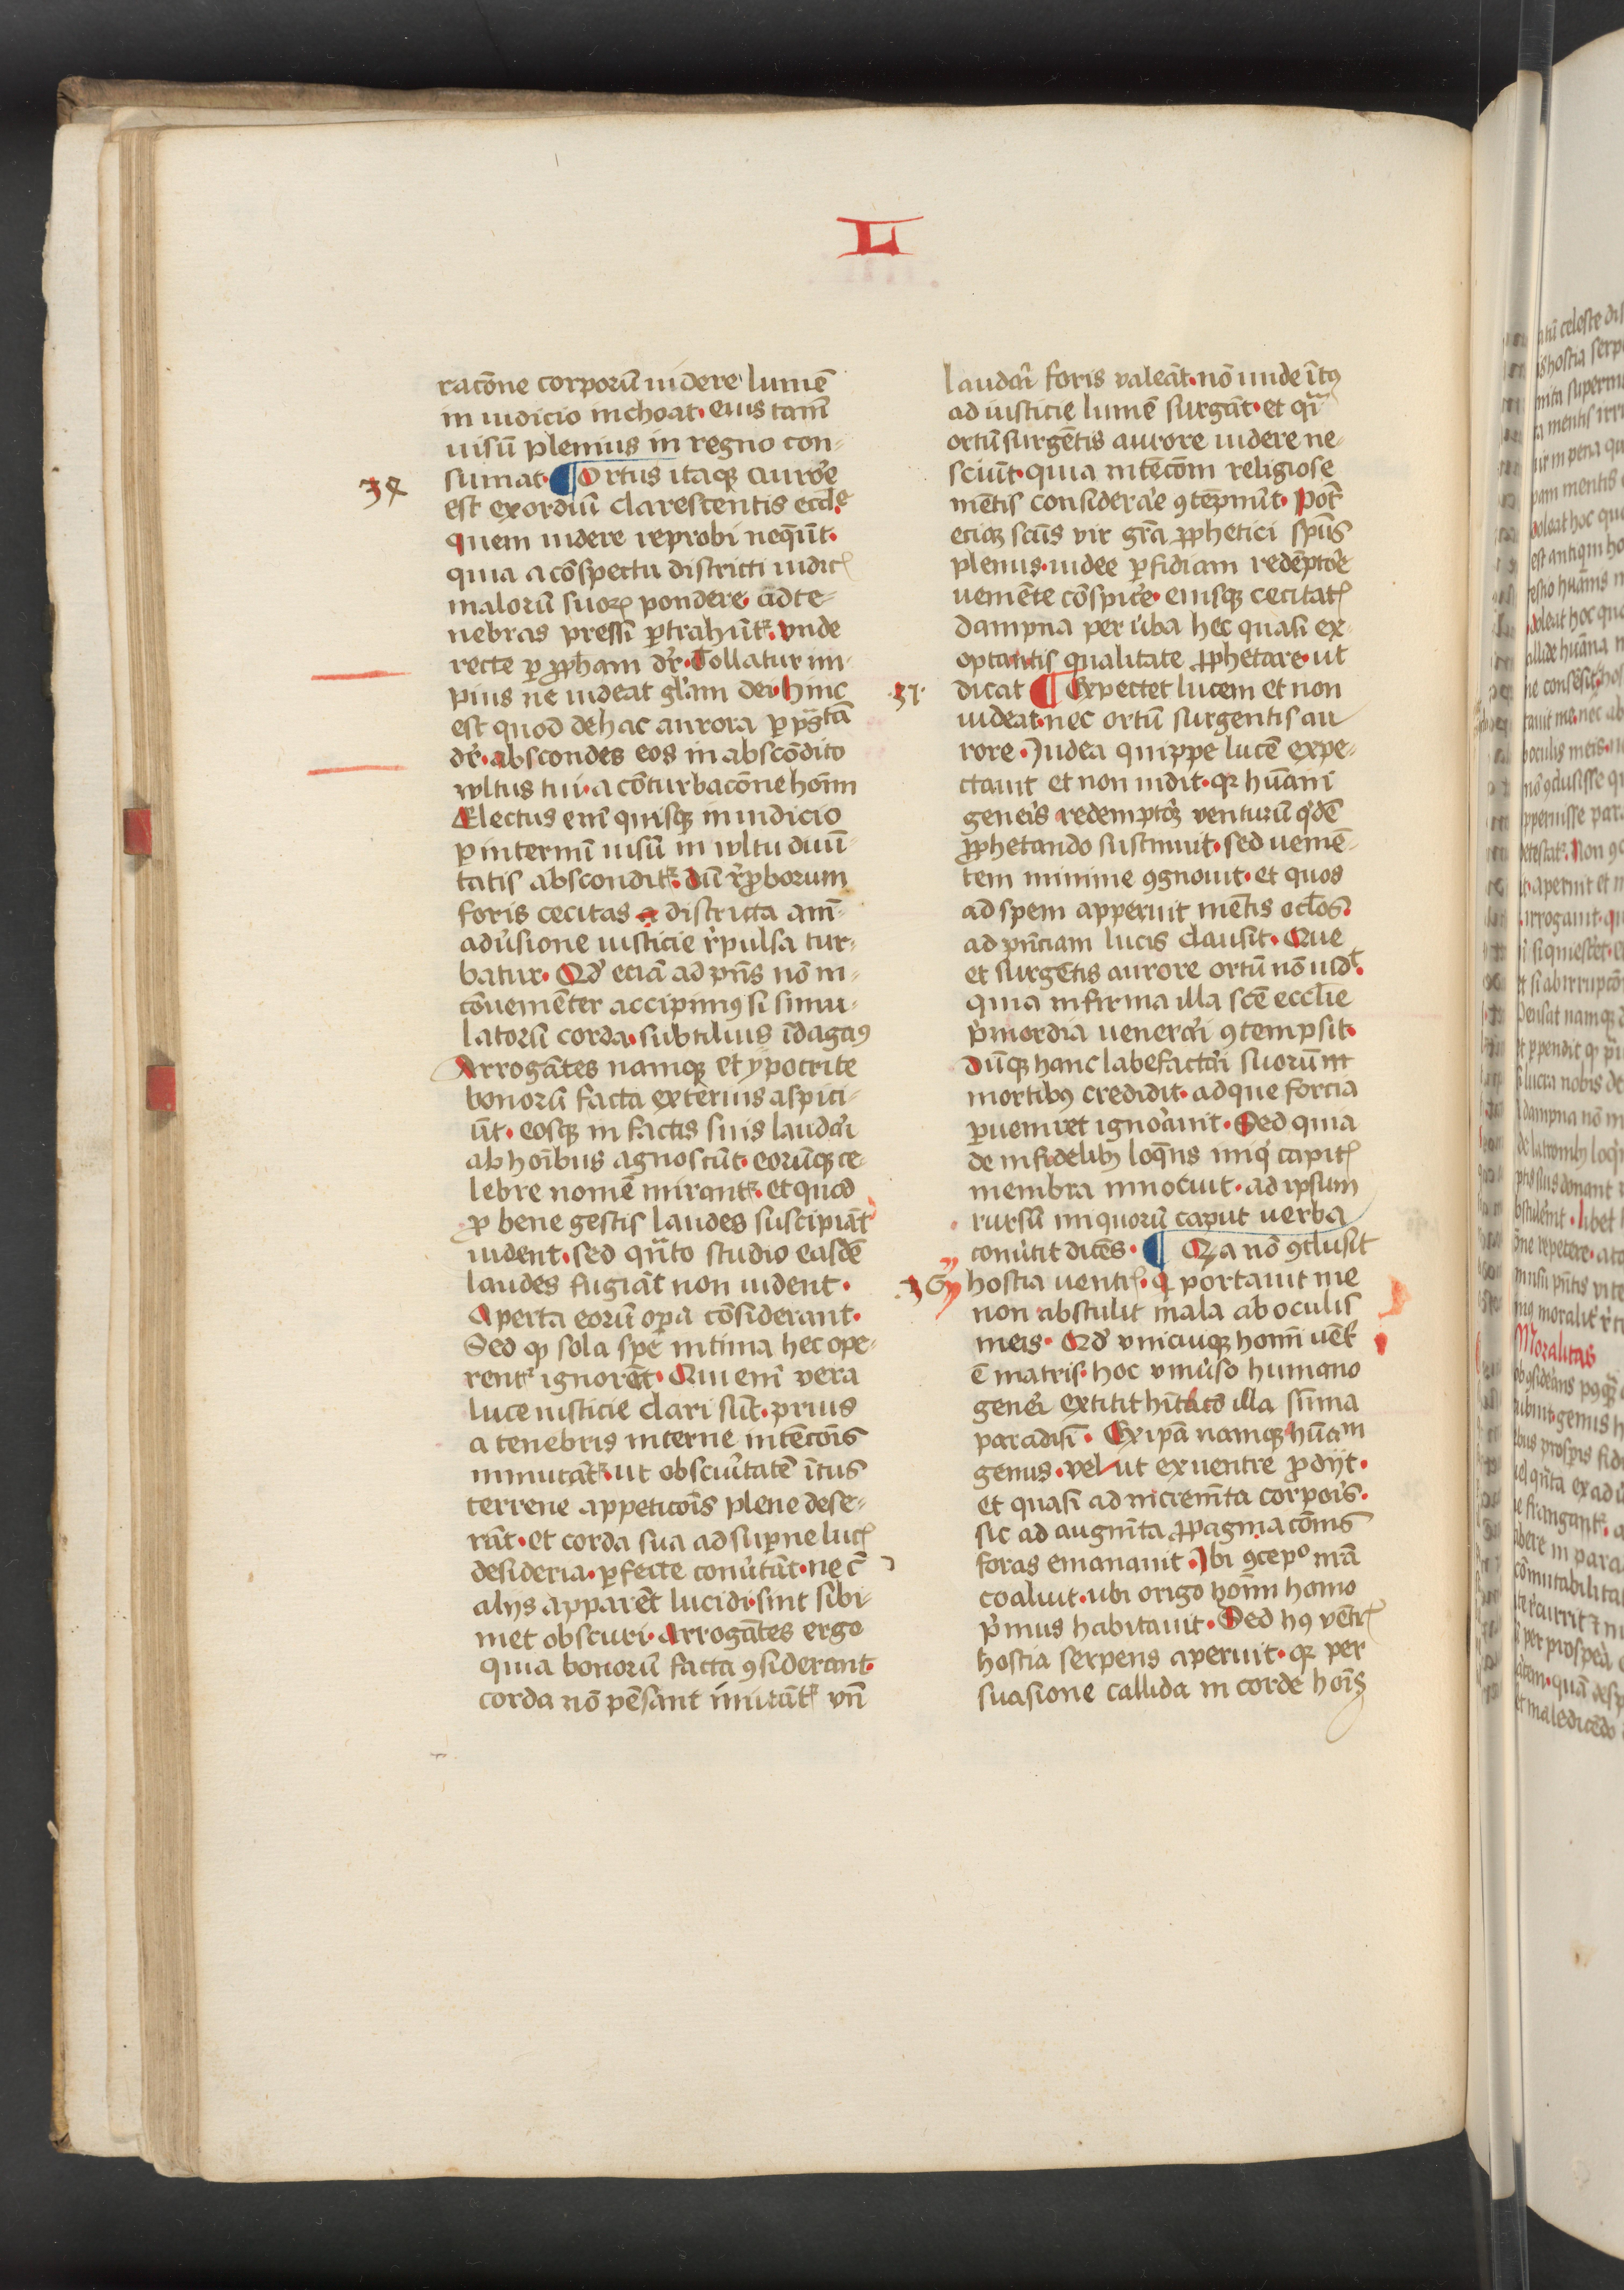 L
racōne corporū uidere lumē
in iudicio inchoat. eius tamē
uisū plenius in regno con-
sumat. Ortus itaqꝫ auroͬe
34
est exordiū clarescentis eccle
quem uidere reprobi neqūt.
quia a cōspectu districti iudicꝭ
malorū suoꝝ pondere ad te-
nebras pressi ꝑtrahūtᷣ. vnde
recte ꝑ ꝓpham dr̄. Tollatur im-
pius ne uideat gl'am dei. hinc
est quod de hac aurora ꝑ psͣtā
dr̄. abscondes eos in abscōdito
wltus tui. a cōturbacōne hoīm
Electus enī quisqꝫ in iudicio
ꝑ internū uisū in wltu diui-
tatis absconditᷣ. dū r̓ꝓborum
foris cecitas a districta aīa-
adūsione iusticie r̓pulsa tur-
batur. Qd̓ eciā ad pn̄s nō in-
cōueniēter accipimꝰ si simu-
latorū corda. subtilius īdagaꝰ
Arrogātes namqꝫ et ypocrite
bonorū facta exterius aspici-
ūt. eosqꝫ in factis suis laudari
ab hoībus agnoscūt. eorūqꝫ ce-
lebre nomē mirantᷣ. et quod
ꝓ bene gestis laudes suscipiāt
uident. sed qn̄to studio easdē
laudes fugiāt non uident.
Aperta eorū oꝑa cōsiderant.
Sed ꝙ sola spe intima hec ope-
rentᷣ ignorāt. Qui enī vera
luce iusticie clari sūt. prius
a tenebris interne intēcōis
inmutātᷣ. ut obscuītatē ītus
terrene appeticōis plene dese-
rāt. et corda sua ad suꝑne lucꝭ
desideria. ꝑfecte conūtūt. ne cū
alijs apparēt lucidi. sint sibi-
met obscuri. Arrogātes ergo
quia bonorū facta ꝯsiderant.
corda nō pēsant imitātᷣ vn̄
laudari foris valeāt. nō unde ītꝰ
ad iusticie lumē surgāt. et qͣi
ortū surgētis aurore uidere ne-
sciūt. quia intēcōm religiose
mētis consideraͬe ꝯtēpnūt. Potͬ
eciaꝫ sc̄us vir gr̄a ꝓphetici sp̄us
plenus. iudee ꝑfidiam redēptoͬe
ueniēte cōspiceͬ. eiusqꝫ cecitatꝭ
dampna per ūba hec quasi ex-
optantis qualitate ꝓphetare. ut
37.
dicat Expectet lucem et non
uideat. nec ortū surgentis au
rore. Judea quippe lucē expe-
ctauit et non uidit. qꝛ hūani
geneis redemptoꝫ venturū q'dē
ꝓphetando sustinuit. sed uenie-
tem minime ꝯgnouit. et quos
ad spem apperuit mētis oc̄los.
ad pn̄ciam lucis clausit. Que
et surgētis aurore ortū nō uidͭ.
quia infirma illa sc̄e eccl̄ie
p'mordia uenerāi ꝯtempsit.
dūqꝫ hanc labefactari suorū in
mortibꝰ credidit. ad que forcia
ꝑueniret ignoͣuit. Sed quia
de infidelibꝫ loq̄ns iniq' capitꝭ
membra innocuit. ad ipsum
rursū iniquorū caput uerba
conūtit dicēs. Qꝛ a nō ꝯclusit
hostia uentrꝭ. q' portauit me
non abstulit mala ab oculis
meis. Qd̓ vnicuiqꝫ homī uētᷣ
ē matris. hoc vniūso humano
geneͬi extitit hītato illa sūma
paradisi. Ex ipā namqꝫ hūam
genus. vel ut ex uentre ꝓdijt.
et quasi ad incremēta corpois.
sic ad augmīta ꝓpaginacōnis
foras emanauit. Jbi ꝯcepͦ nr̄a
coaluit. ubi origo hoīm homo
p'mus habitauit. Sed hꝰ vētrꝭ
hostia serpens aperuit. qꝛ per
suasione callida in corde hoīs